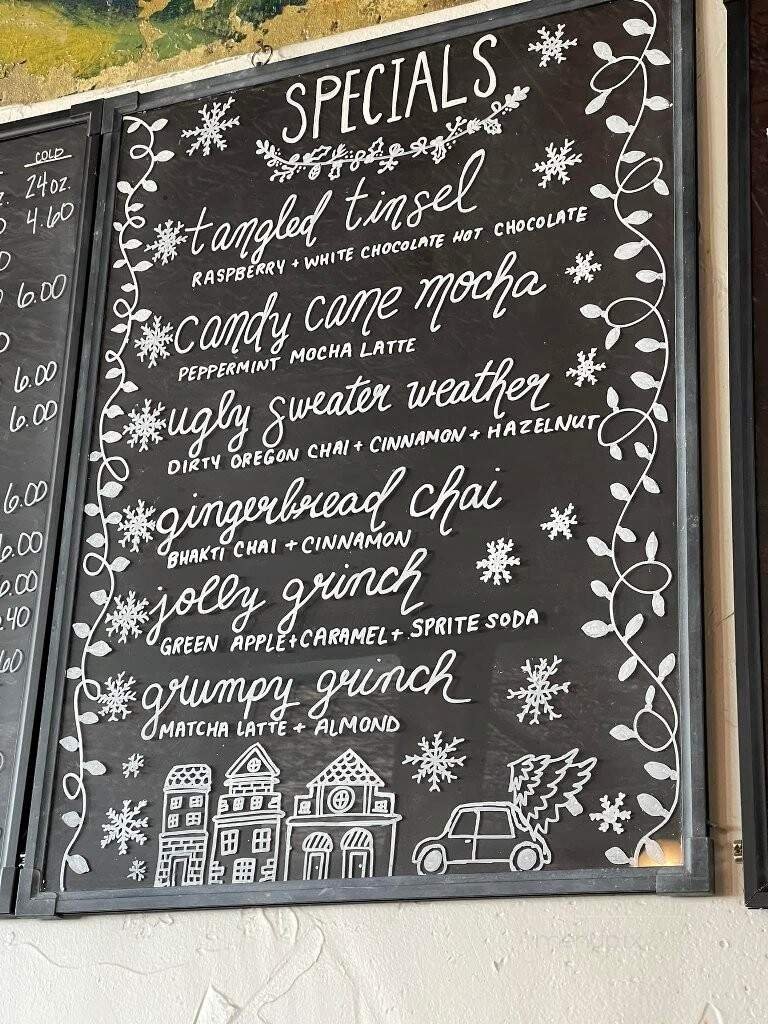 SPECIALS
tangled tinsel
RASPBERRY + WHITE CHOCOLATE HOT CHOCOLATE
candy cane mocha
PEPPERMINT MOCHA LATTE
ugly sweater weather
DIRTY OREGON CHAI + CINNAMON + HAZELNUT
gingerbread chai
BHAKTI CHAI + CINNAMON
jolly grinch
GREEN APPLE + CARAMEL + SPRITE SODA
grumpy grinch
MATCHA LATTE + ALMOND
COLD
24 OZ.
4.60
6.00
6.00
6.00
6.00
6.00
6.00
.40